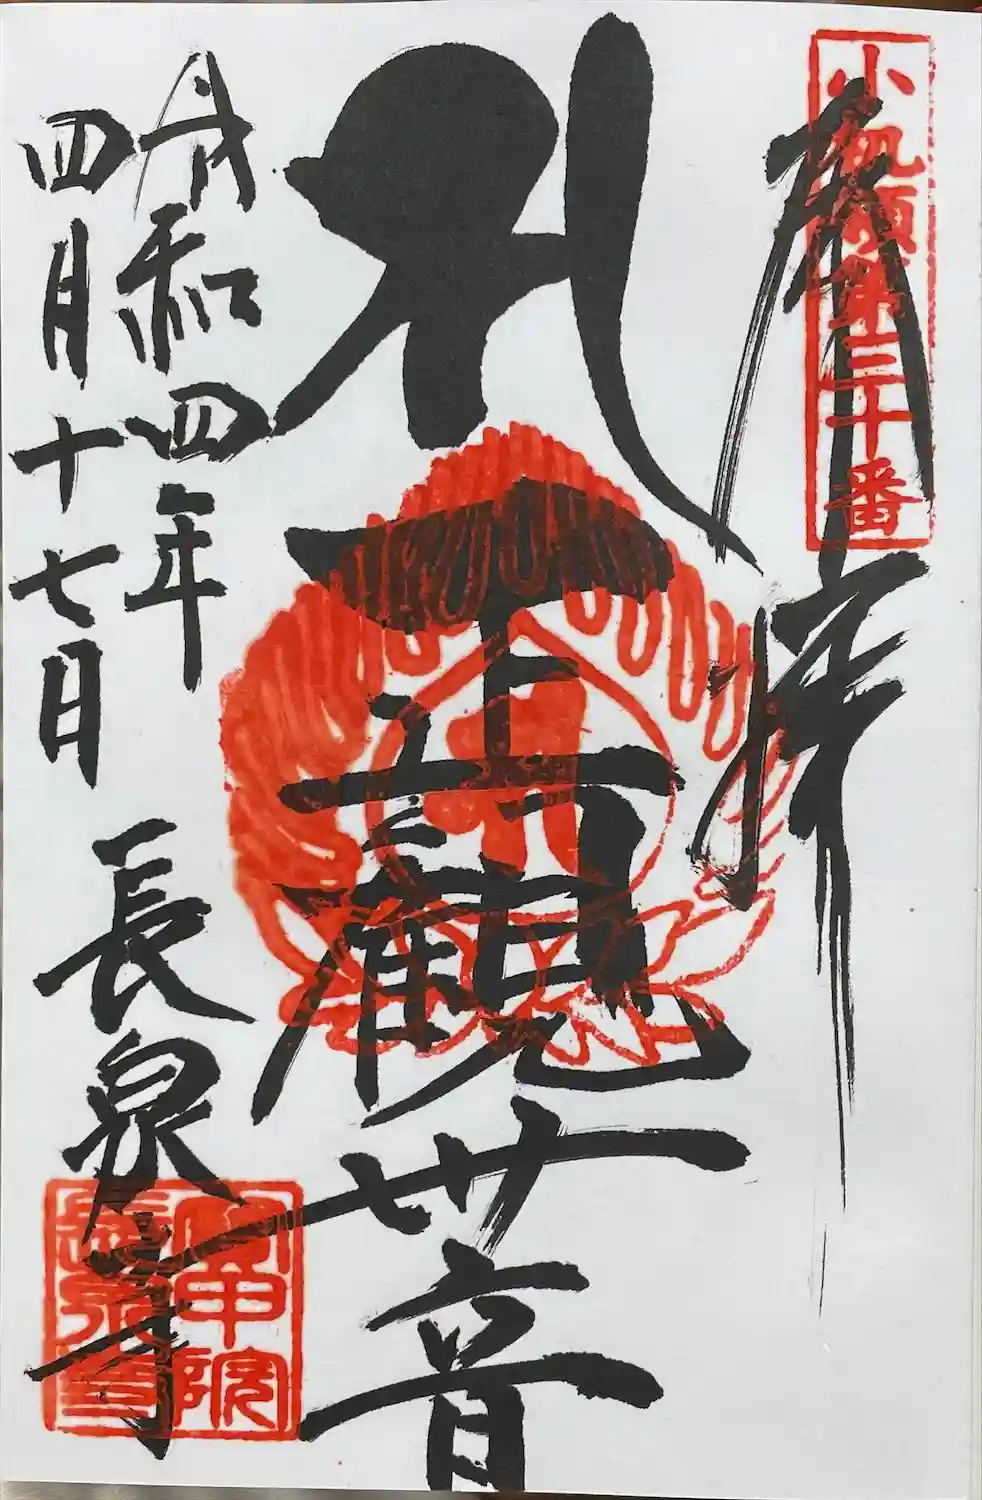 小机領第三十番
奉拝
正觀世音
令和四年
四月十七日
長泉寺